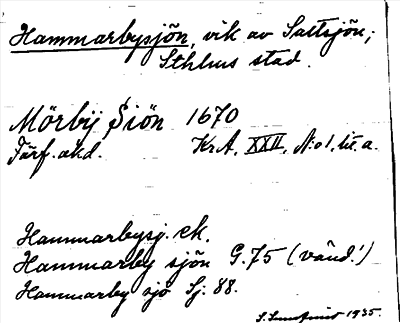 Hammarbysjön, vik av Saltsjön,;
Sthlms stad.
Mörbÿ Siön 1670
Färf. akd. KrA, XXII, N:o 1, lit. a.
Hammarbysj. ek.
Hammarby sjön G. 75 (vänd!)
Hammarby sjö Sj. 88.
1935.